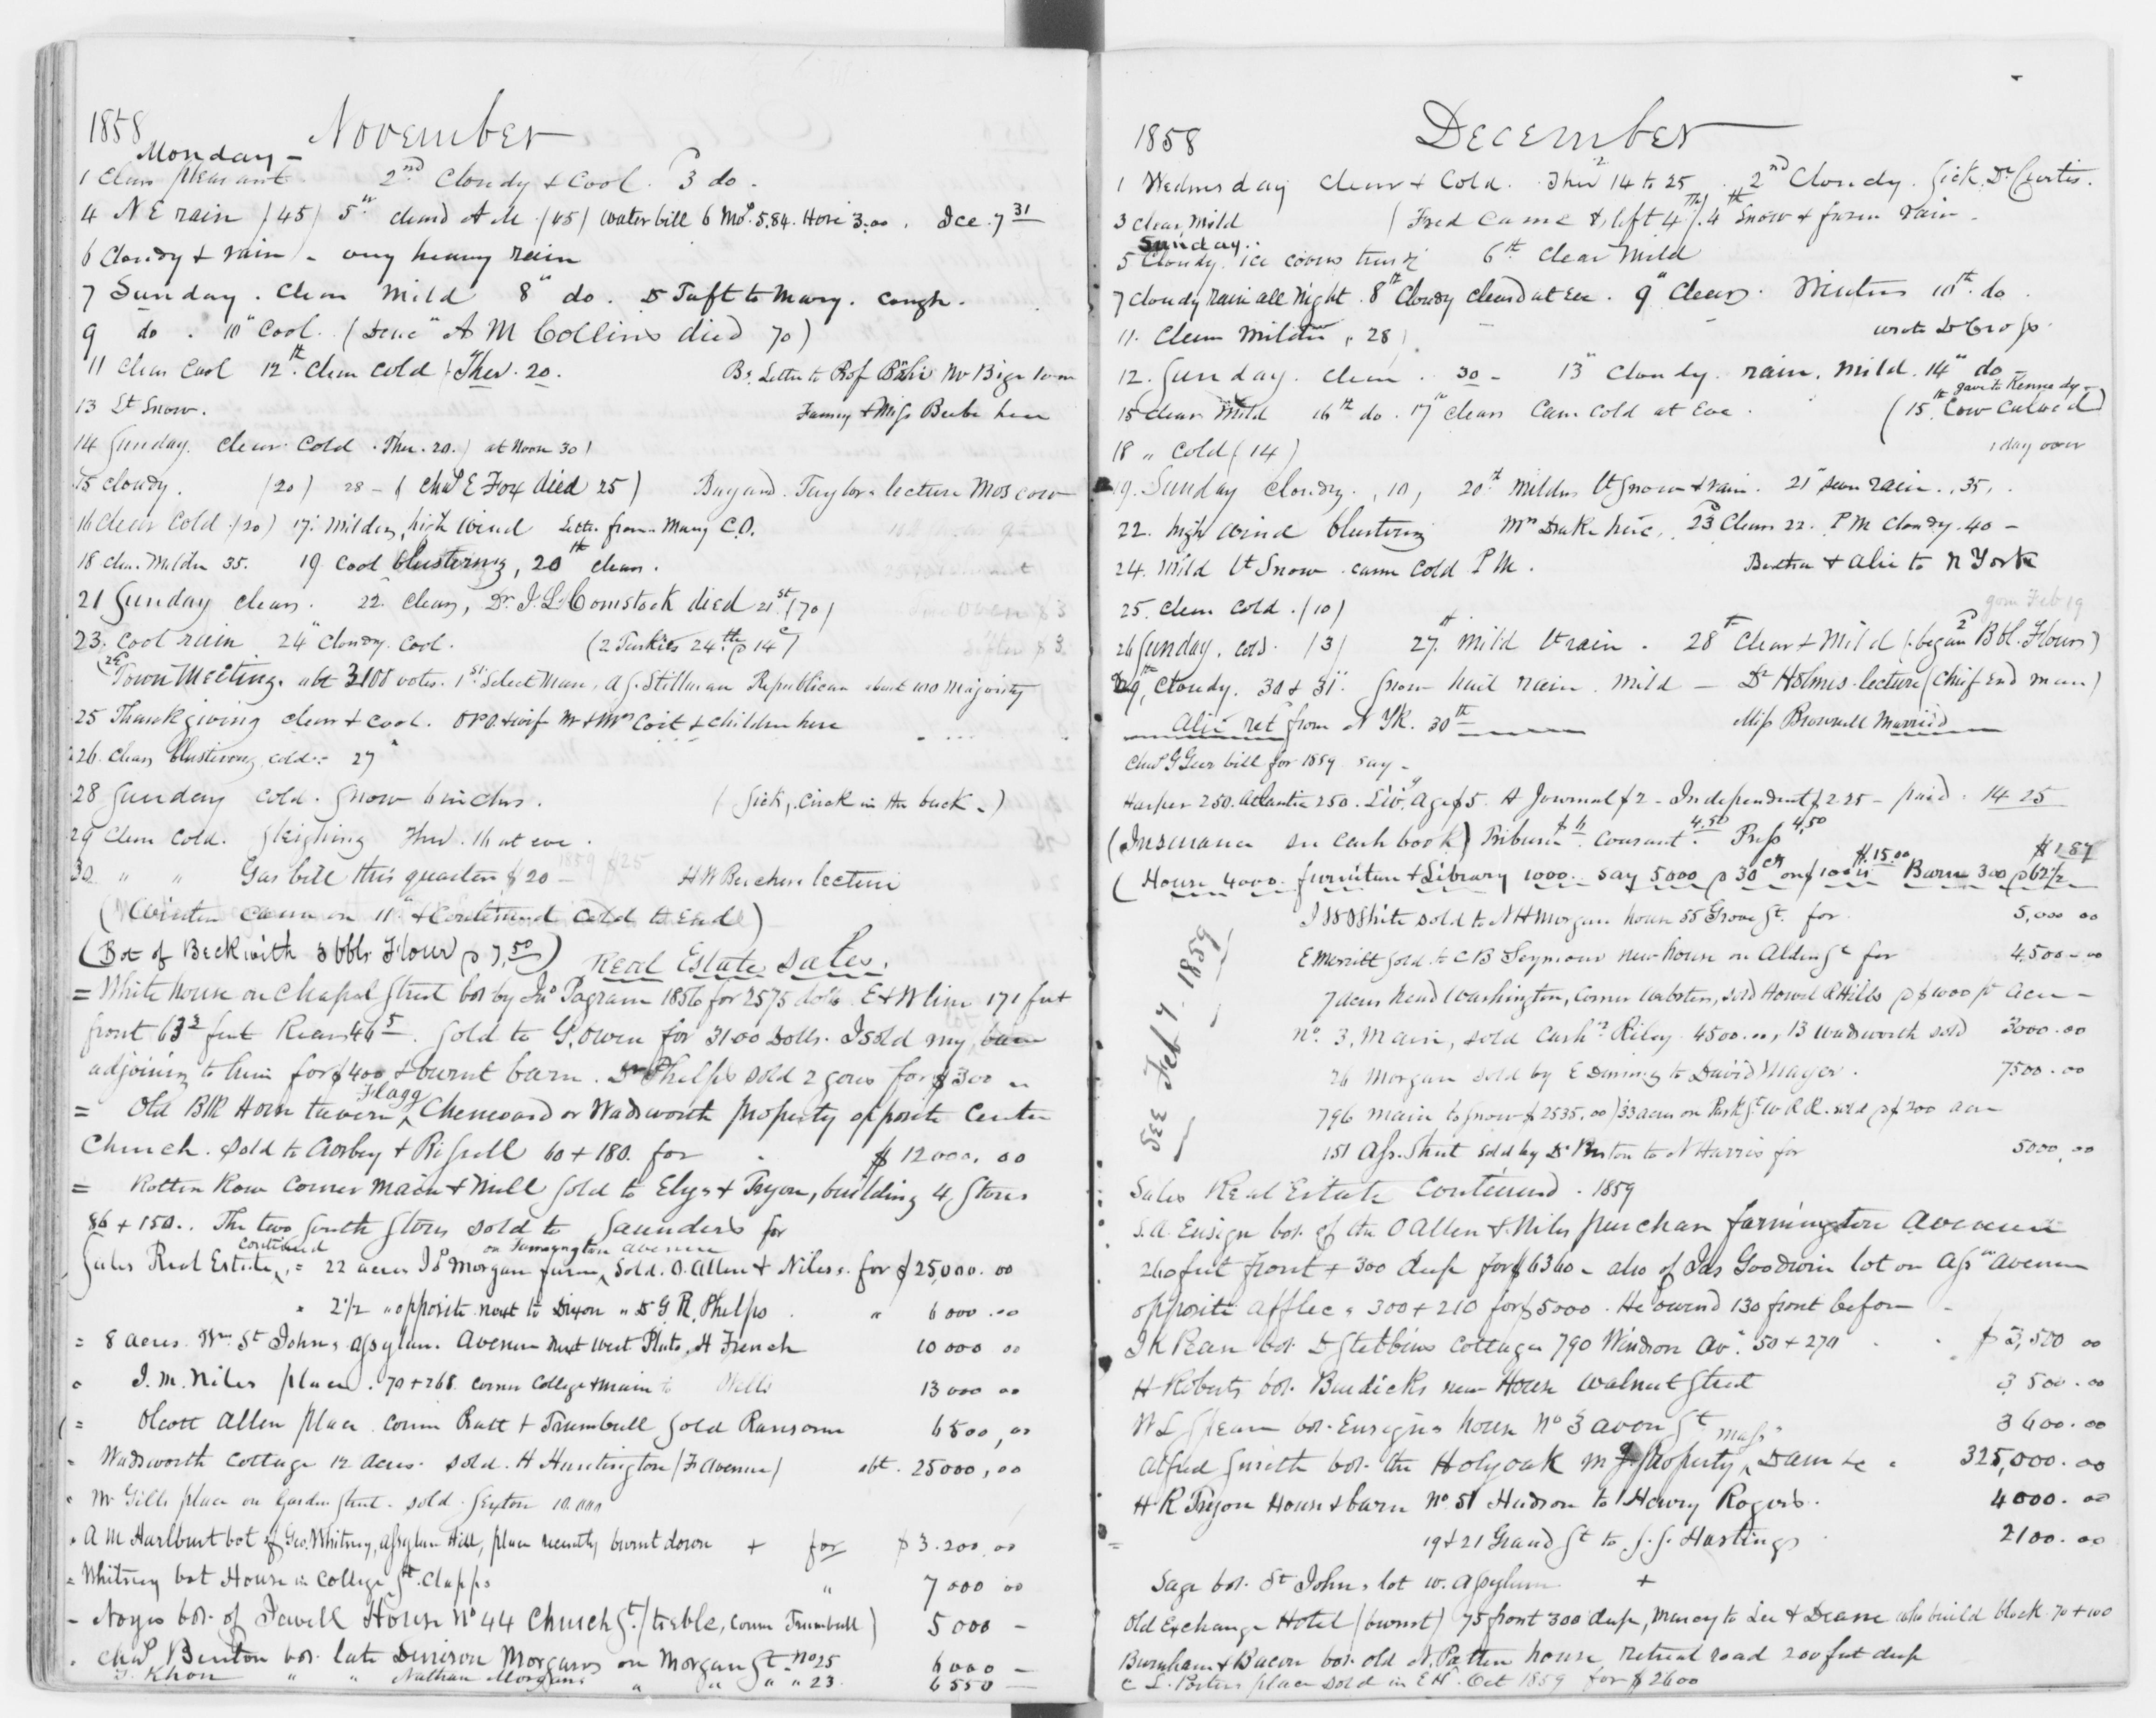 1858 November
Monday -
1 Clear pleasant. 2nd Cloudy & Cool. 3 do.
4 N E rain (45) 5" cleard A M. (45) water bill 6 Mos. 5.84. Hose 3.00. Ice 7 31
6 Cloudy & rain - very heavy rain
7 Sunday. Clear mild 8" do. D Taft to Mary. Cough.
9 do. 10" Cool. (Deac" A M Collins died 70)
11 Clear Cool 12th. Clear Cold (Ther. 20. Letter to Prof
13 Lt Snow. Fanny & Miss Beebe here
14 Sunday. Clear Cold. Ther. 20.) at Noon 30)
15 Cloudy. (20) 28 - (Chas E Fox died 25) Bayard Taylor's lecture Moscow
16 Clear Cold (20) 17. Milder, high wind Letter from Mary C.O.
18 Clear. Milder 35. 19 Cool blustering, 20th clear.
21 Sunday clear. 22 Clear, Dr. J. L. Comstock died 21st (70)
23. Cool rain 24" Cloudy. Cool. (2 Turkies 24th @ 14c)
Town Meeting. abt 3100 votes. 1st Select Man, A G. Stillman Republican about 100 majority
25 Thanksgiving clear & cool. & wife Mr & Mrs Coit & children here
26. Clear blustering cold. 27"
28 Sunday cold. Snow 6 inches. (Sick, in the back -)
29 Clear Cold. Sleighing Ther. 16 at eve.
30 " " Gas bill this quarter $20 - H W Beechers lecture
(Winter came on 11" & Continued Cold to End)
(Bot of Beckwith 3 bbls Flour @ 7.50) Real Estate Sales.
= White house on Chapel Street bot by Jno Pagram 1856 for 2575 dolls. E & W line 171 feet
front 63 3 feet Rear 46 5. Sold to G. Owen for 3100 Dolls. I sold my barn
adjoining to him for $400 & burnt barn. Dr Phelps sold 2 gores for $300
= Old Blk Horse tavern Flagg, Chenevard or Wadsworth property opposite Center
Church. Sold to Corbey & Russell 60 + 180. for $12000.00
= Rotten Row Corner Main & Mill sold to Elys & Tryon, building 4 Stores
86 + 150. The two South Stores sold to Saunders for
Sales Real Estate, continued = 22 acres J S Morgan farm on Farmington avenue, Sold. O. Allen & Niles. for $25,000.00
" 2 1/2 " opposite next to Dixon " D G R. Phelps " 6000.00
= 8 acres. Wm St John, Assylum Avenue next west Pluto, H French 10000 00
" J. M. Niles place. 70 + 268. corner College & Main to Wells 13000 00
= Olcott Allen place corner Pratt & Trumbull sold Ransom 6500,00
" Wadsworth Cottage 12 acres. sold. H Huntington (F avenue) abt. 25000,00
" Mr Gills place on Garden Street. sold. Sexton 10.000
" A M Hurlburt bot of Geo. Whitney, Assylum Hill, place recently burnt down + for $3.200.00
= Whitney bot House in College St. Clapps " 7000 00
- Noyes bot. of Jewell House No 44 Church St. (treble, corner Trumbull) 5000 -
. Chas Benton bot. late Denison Morgans on Morgan St - no 25 6000 -
T. Khon " " Nathan Morgans " " " " 23. 6550 -
1858 December
1 Wednesday Clear & Cold. Ther 14 to 25. 2nd Cloudy. Sick. Dr Curtis.
3 Clear, Mild (Fred came & left 4th). 4th Snow & frozen rain.
Sunday.
5 Cloudy. ice covers trees 6th Clear Mild
7 Cloudy rain all night. 8th Cloudy cleard at Eve. 9" Clear. 10th. do.
11. Clear Milder, 28) wrote D
12. Sunday. Clear. 30 - 13" Cloudy. rain. Mild. 14" do
gave to Kennedy
15 Clear Mild 16th do. 17" Clear Cam Cold at Eve. (15.th Cow Calved)
18 " Cold (14) 1 day over
19. Sunday Cloudy. ,10, 20th. Milder Lt Snow & rain. 21" rain. ,35,.
22. high wind blustering Mrs Drake here. 23 Clear 22. P M Cloudy. 40 -
24. Mild Lt Snow. came Cold P M. Bertha & Alie to N York
25. Clear Cold. (10) gone Feb 19
26 Sunday. Cold. (3) 27th. Mild Lt rain. 28th Clear & Mild (began 2d Bbl. Flour)
29, Cloudy. 30 & 31". Snow hail rain. mild - Dr Holmes lecture (Chief End man)
Alie ret from N Yk. 30th Miss Brownell Married
Chas G Geer bill for 1859 say -
Harper 250. Atlantic 250. Liv.g Age $5. A Journal $2 - Independent $2 25 - paid. 14 25
(Insurance see cash book) Tribune $6. Courant 4.50. Press 4.50
$1.87
(House 4000. furniture & Library 1000. say 5000 @ 30 cts on $100 is $15.00 Barn 300 @ 62 1/2
White sold to N H Morgan house 55 Grove St. for 5,000 00
E Merritt sold to C B Seymour new house on Alden St for 4500 - 00
7 acres head Washington, Corner Webster, sold Howel R Hills @ $1000 pr acre -
No. 3. Main, sold Cashr Riley 4500.00, 13 Wadsworth sold 3000.00
26 Morgan sold by E Dimming to David Mayer. 7500.00
796 Main to Snow $2535.00) 33 acres on Park St W R R. sold @ $200 acre
151 Ass. Street sold by Dr Preston to N Harris for 5000,00
335 Feb 7. 1859
Sales Real Estate Continued. 1859
S. A. Ensign bot. of the O Allen & Niles purchase Farmington Avenue
260 feet front + 300 deep for $6360 - also of Jas Goodwin lot on Assm Avenue
opposite Afflec " 300 + 210 for $5000. He owend 130 front before -
J K Pean bot. D Stebbins Cottage 790 Windsor Av". 50 + 270 $2,500 00
H Roberts bot. Burdicks new House Walnut Street 3 500.00
W L Spean bot. Ensigns house No 3 Avon St 3600.00
Alfred Smith bot. the Holyoak Mg Property, mass Dam &c 325,000.00
H R Tryon House & barn No. 51 Hudson to Henry Rogers. 4000.00
19 & 21 Grand St to S. S. Hastings 2100.00
Sage bot. St Johns lot w. Assylum +
Old Exchange Hotel (burnt) 75 front 300 deep, Marcy to Lee & Deane who build block 70 + 100
Burnham & Bacon bot. old N. Patten house, retreat road 200 feet deep
C L. Porters place sold in E H. Oct 1859 for $2600